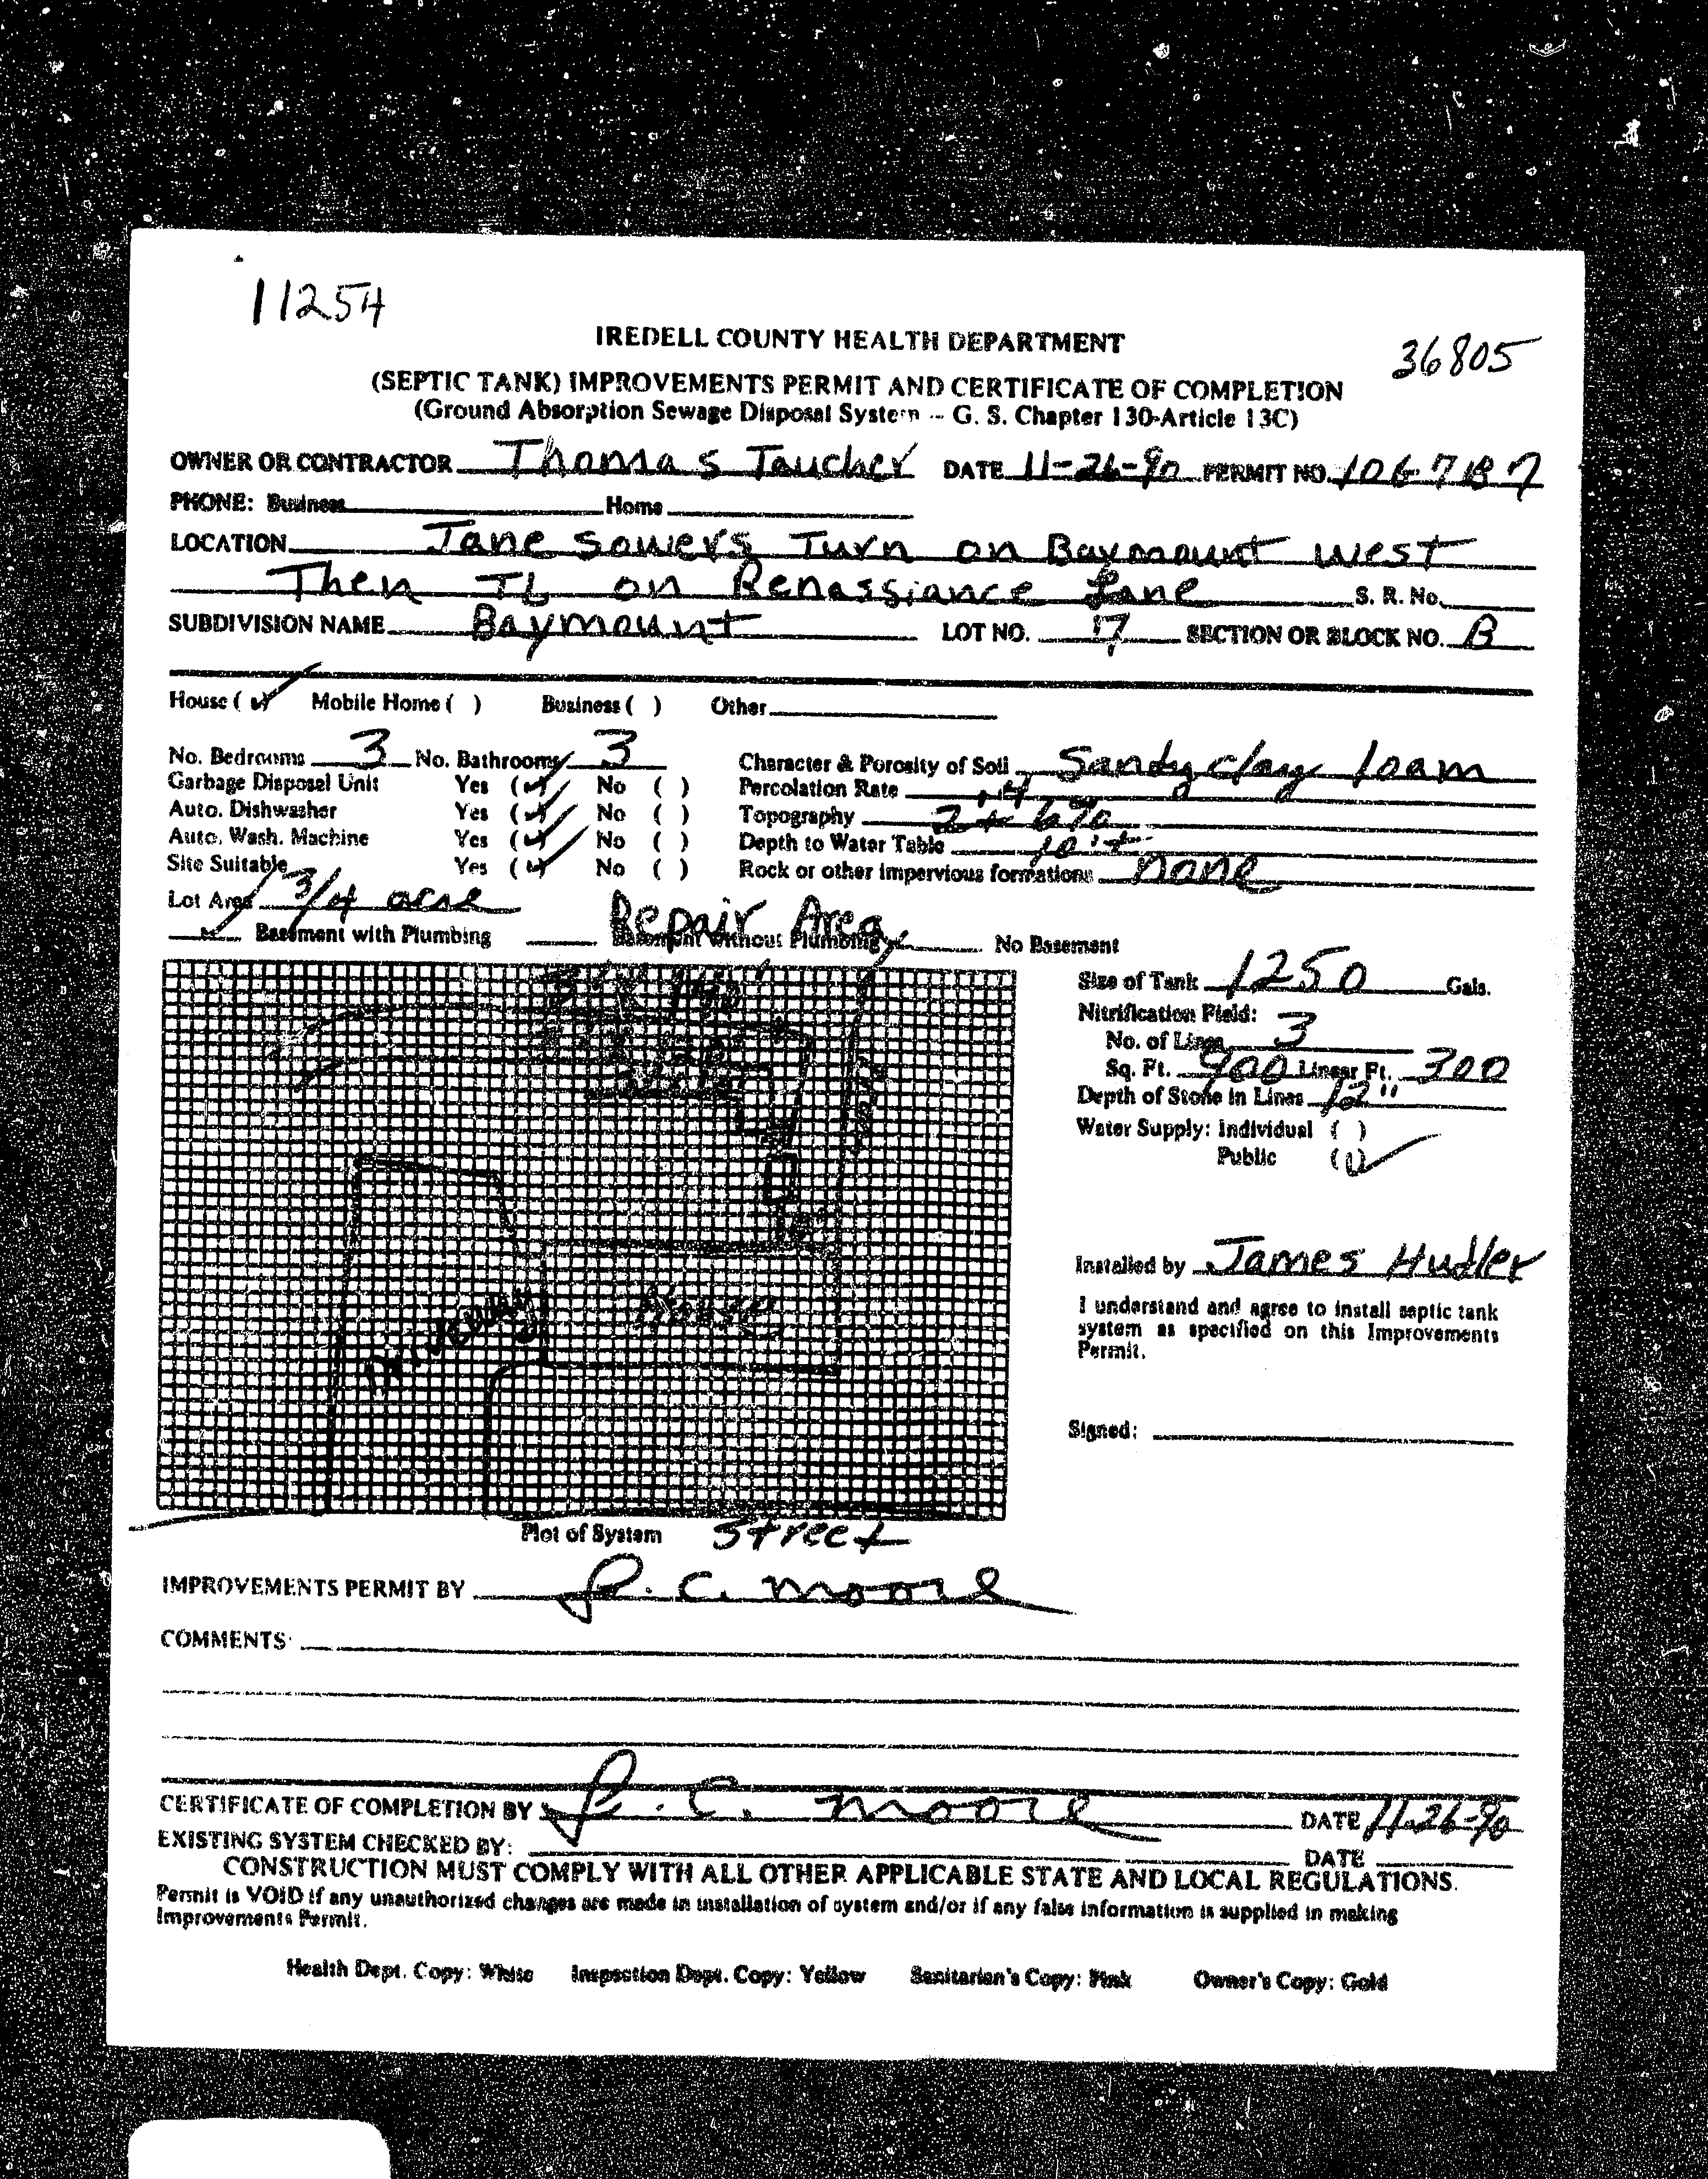 11254
IREDELL COUNTY HEALTH DEPARTMENT
36805
(SEPTIC TANK) IMPROVEMENTS PERMIT AND CERTIFICATE OF COMPLETION
(Ground Absorption Sewage Disposal System -- G. S. Chapter 130-Article 13C)
OWNER OR CONTRACTOR Thomas Taucher DATE 11-26-90 PERMIT NO.
PHONE: Business Home
LOCATION Jane Sowers Turn on Baymount West
Then TL on Renassiance Lane S. R. No.
SUBDIVISION NAME Baymount LOT NO. 17 SECTION OR BLOCK NO. B
House (✓) Mobile Home ( ) Business ( ) Other
No. Bedrooms 3 No. Bathrooms 3 Character & Porosity of Soil Sandy clay loam
Garbage Disposal Unit Yes (✓) No ( ) Percolation Rate .4
Auto. Dishwasher Yes (✓) No ( ) Topography 2 to 6%
Auto. Wash. Machine Yes (✓) No ( ) Depth to Water Table 10'+
Site Suitable Yes (✓) No ( ) Rock or other impervious formations none
Lot Area 3/4 acre
Repair Area
✓ Basement with Plumbing Basement without Plumbing No Basement
Size of Tank 1250 Gals.
Nitrification Field:
No. of Lines 3
Sq. Ft. 900 Linear Ft. 300
Depth of Stone in Lines 12"
Water Supply: Individual ( )
Public (✓)
Driveway
House
Installed by James Hudler
I understand and agree to install septic tank
system as specified on this Improvements
Permit.
Signed:
Plot of System Street
IMPROVEMENTS PERMIT BY R. C. Moore
COMMENTS:
CERTIFICATE OF COMPLETION BY R. C. Moore DATE 11-26-90
EXISTING SYSTEM CHECKED BY: DATE
CONSTRUCTION MUST COMPLY WITH ALL OTHER APPLICABLE STATE AND LOCAL REGULATIONS.
Permit is VOID if any unauthorized changes are made in installation of system and/or if any false information is supplied in making
Improvements Permit.
Health Dept. Copy: White Inspection Dept. Copy: Yellow Sanitarian's Copy: Pink Owner's Copy: Gold